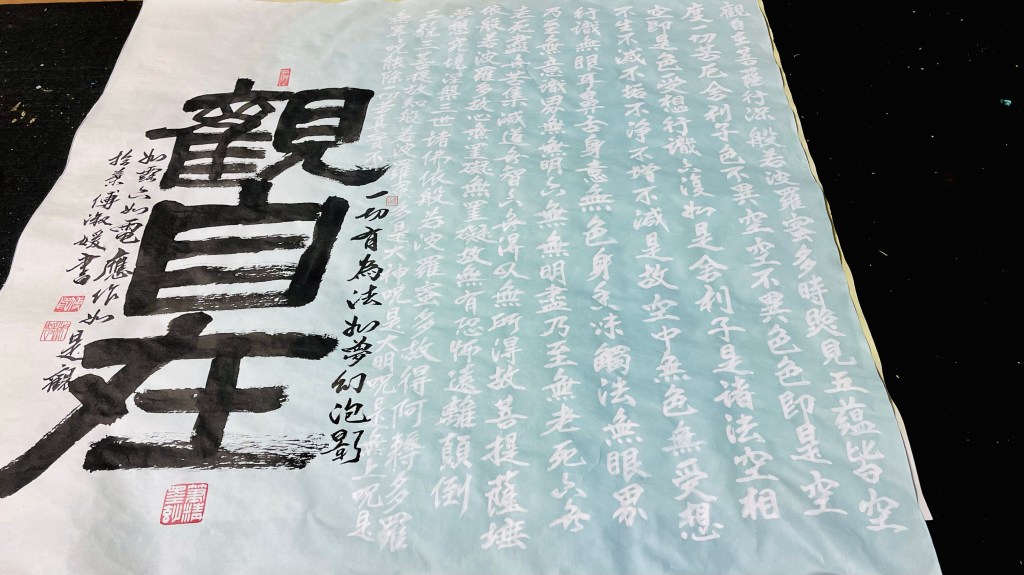 觀自在菩薩行深般若波羅蜜多時照見五蘊皆空
度一切苦厄舍利子色不異空空不異色色即是空
空即是色受想行識亦復如是舍利子是諸法空相
不生不滅不垢不淨不增不減是故空中無色無受想
行識無眼耳鼻舌身意無色身香味觸法無眼界
乃至無意識界無無明亦無無明盡乃至無老死亦無
老死盡無苦集滅道無智亦無得以無所得故菩提薩埵
依般若波羅多故心無罣礙無罣礙故無有恐怖遠離顛倒
夢想究竟涅槃三世諸佛依般若波羅蜜多故得阿耨多羅
三藐三菩提故知般若波羅蜜多是大神咒是大明咒是無上咒是
一切有為法如夢幻泡影
觀自在
如露亦如電應作如是觀
傅淑媛書